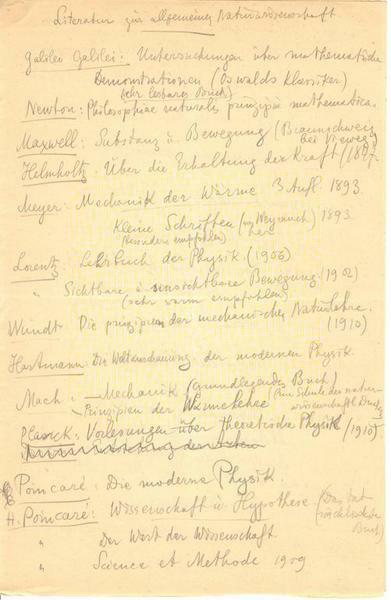 Literatur zur allgemeinen Naturwissenschaft
Galileo Galilei: Untersuchungen über mathematische
Demonstrationen (Oswalds Klassiker)
(sehr lesbares Buch)
Newton: Philosophiae naturalis prinzipia mathematica.
Maxwell: Substanz u. Bewegung (Braunschweig
bei Vieweg)
Helmholtz: Über die Erhaltung der Kraft (1847.
Meyer: Mechanik der Wärme 3 Aufl. 1893
Kleine Schriften (v. Weyrauch) 1893
(besonders empfohlen)
Lorentz: Lehrbuch der Physik (1906)
" Sichtbare u. unsichtbare Bewegung (1902)
(sehr warm empfohlen)
Wundt: Die prinzipien der mechanischen Naturlehre.
(1910)
Hartmann: Die Weltanschauung der modernen Physik.
Mach: - Mechanik (grundlegendes Buch)
- Prinzipien der Wärmelehre (Eine Schule des natur-
wissenschaftl. Denkens
Planck: Vorlesungen über theoretische Physik (1910)
Poincaré: Die moderne Physik.
H. Poincaré: Wissenschaft u. Hypothese (Das hat
Buch)
" Der Wert der Wissenschaft
" Science et Methode 1909